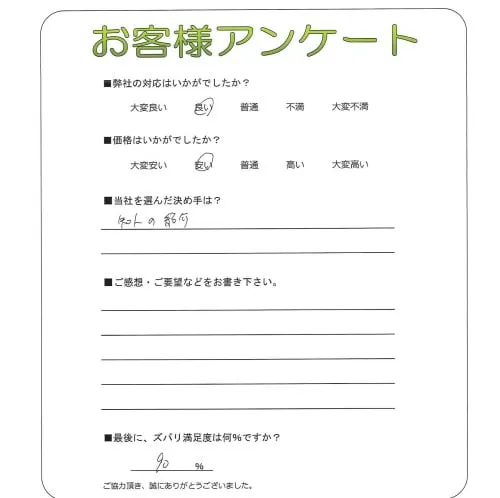 お客様アンケート
■弊社の対応はいかがでしたか？
大変良い 良い 普通 不満 大変不満
■価格はいかがでしたか？
大変安い 安い 普通 高い 大変高い
■当社を選んだ決め手は？
知人の紹介
■ご感想・ご要望などをお書き下さい。
■最後に、ズバリ満足度は何％ですか？
90 ％
ご協力頂き、誠にありがとうございました。